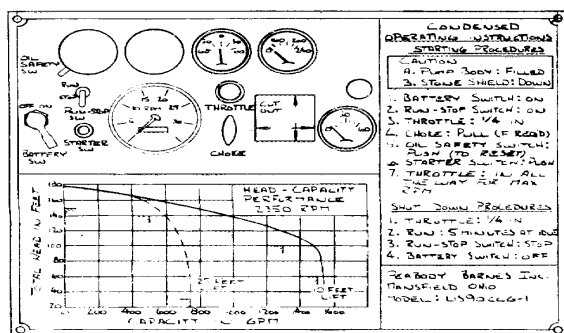 OIL
SAFETY
SW
RUN
STOP
RUN-STOP
SW
OFF ON
STARTER
SW
BATTERY
SW
THROTTLE
CHOKE
CUT
OUT
HEAD - CAPACITY
PERFORMANCE
2350 RPM
TOTAL HEAD IN FEET
25 FEET
LIFT
10 FEET
LIFT
CAPACITY IN GPM
CONDENSED
OPERATING INSTRUCTIONS
STARTING PROCEDURES
CAUTION
A. PUMP BODY: FILLED
B. STONE SHIELD: DOWN
1. BATTERY SWITCH: ON
2. RUN-STOP SWITCH: ON
3. THROTTLE: 1/4 IN
4. CHOKE: PULL (IF REQD)
5. OIL SAFETY SWITCH:
PUSH (TO RESET)
6 STARTER SWITCH: PUSH
7. THROTTLE: IN ALL
THE WAY FOR MAX
RPM
SHUT DOWN PROCEDURES
1. THROTTLE: 1/4 IN
2. RUN: 5 MINUTES AT IDLE
3. RUN-STOP SWITCH: STOP
4. BATTERY SWITCH: OFF
PEABODY BARNES INC.
MANSFIELD OHIO
MODEL: